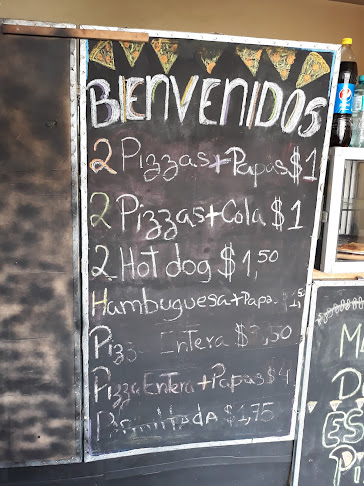 BIENVENIDOS
2 Pizzas+Papas $1
2 Pizzas+Cola $1
2 Hot dog $1,50
Hambuguesa+Papa
Entera
Pizza Entera+Papas $4
$1,75
pepsi
MA
D
ES
Pi